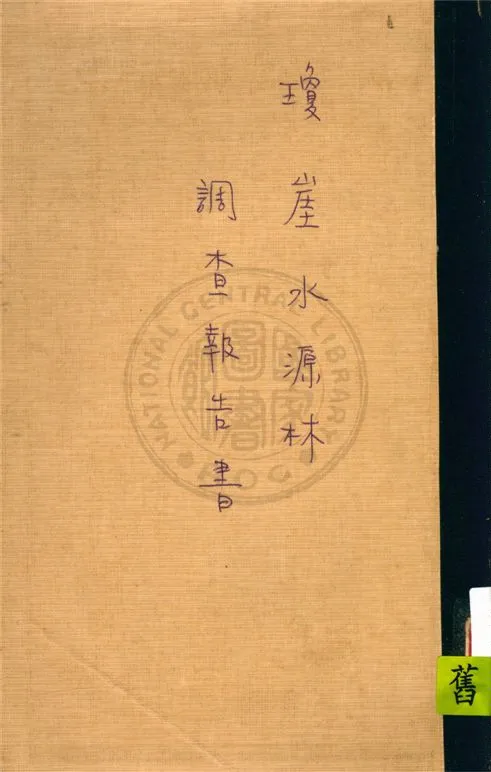 瓊崖水源林
調查報告書
NATIONAL CENTRAL LIBRARY
舊